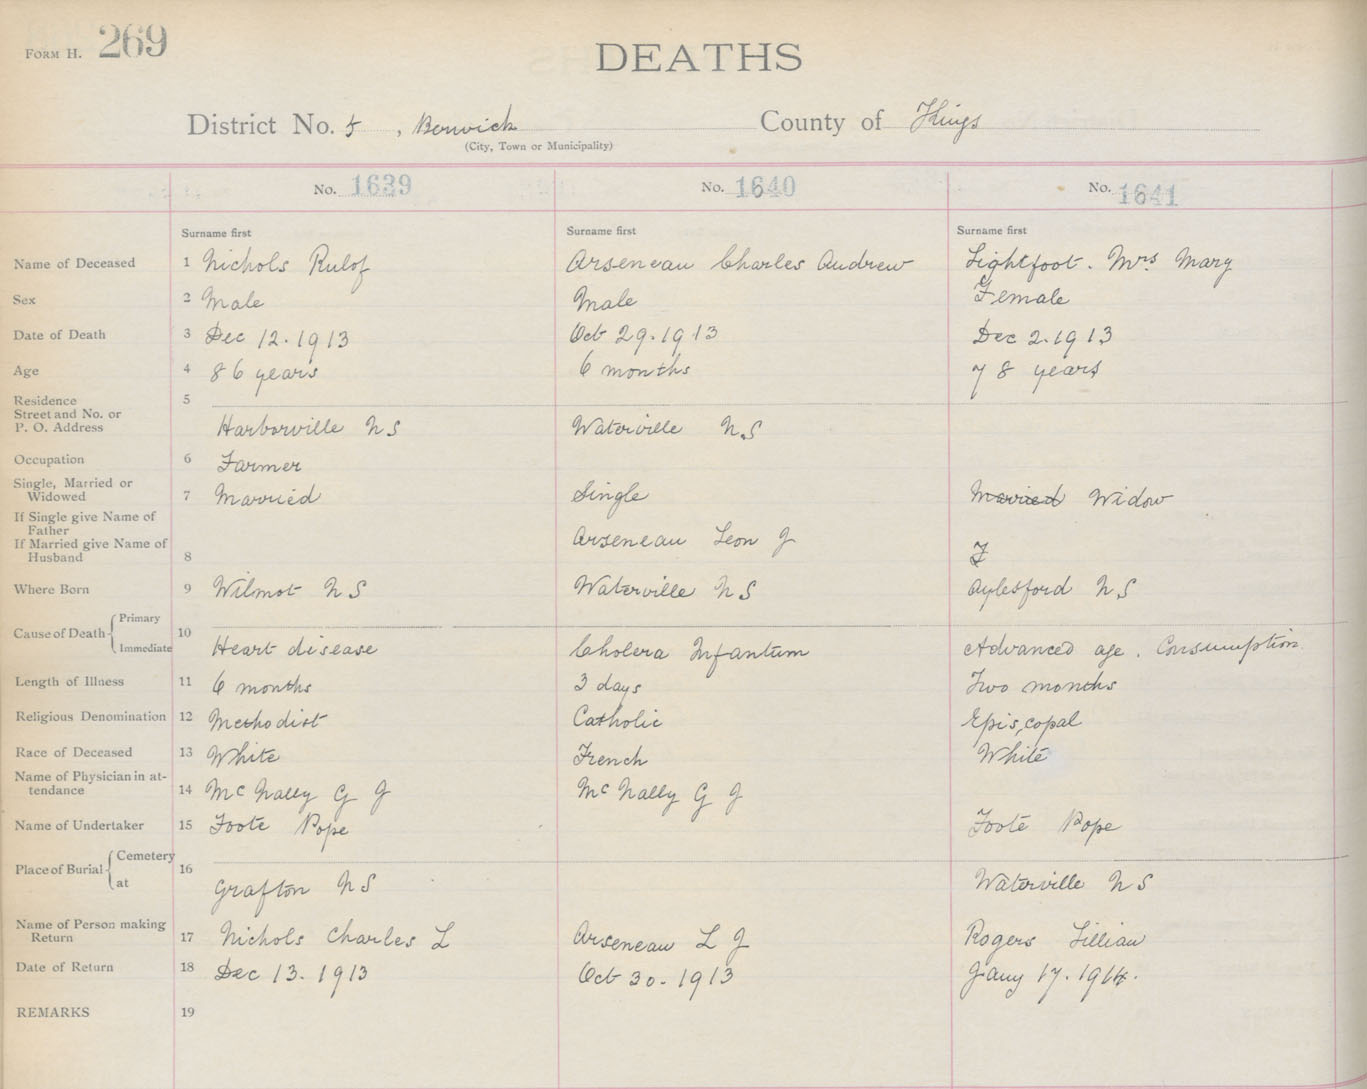 FORM H. 269
DEATHS
District No. 5, Berwick County of Kings
(City, Town or Municipality)
No. 1639 No. 1640 No. 1641
Surname first Surname first Surname first
Name of Deceased 1 Nichols Rulof Arseneau Charles Andrew Lightfoot. Mrs Mary
Sex 2 Male Male Female
Date of Death 3 Dec 12. 1913 Oct 29. 1913 Dec 2. 1913
Age 4 86 years 6 months 78 years
Residence 5
Street and No. or
P. O. Address Harborville N S Waterville N.S
Occupation 6 Farmer
Single, Married or
Widowed 7 Married Single Married Widow
If Single give Name of
Father
If Married give Name of Arseneau Leon J
Husband 8
Where Born 9 Wilmot N S Waterville N S Aylesford N S
Primary
Cause of Death 10
Immediate Heart disease Cholera Infantum Advanced age. Consumption.
Length of Illness 11 6 months 3 days Two months
Religious Denomination 12 Methodist Catholic Episcopal
Race of Deceased 13 White French White
Name of Physician in at-
tendance 14 McNally G J McNally G J
Name of Undertaker 15 Foote Pope Foote Pope
Cemetery
Place of Burial 16
at Grafton N S Waterville N S
Name of Person making
Return 17 Nichols Charles L Arseneau L J Rogers Lillian
Date of Return 18 Dec 13. 1913 Oct 30. 1913 Jany 17. 1914.
REMARKS 19